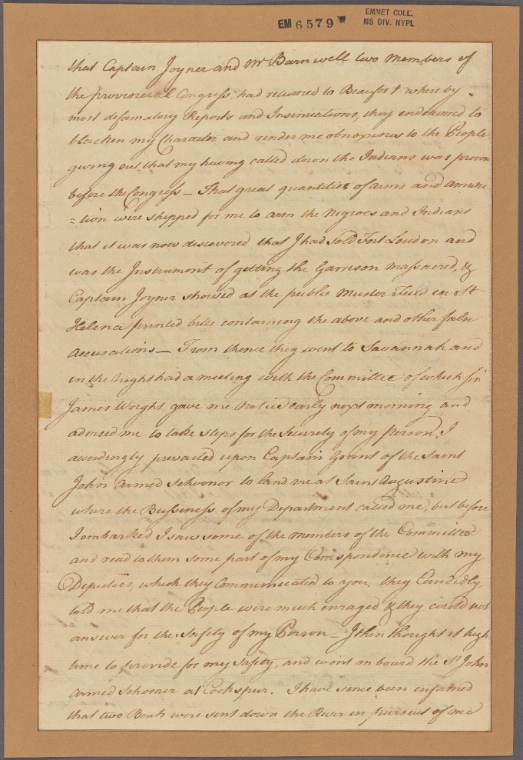 EM 6579
EMMET COLL.
MS DIV. NYPL
that Captain Joyner and Mr Barnwell two Members of
the provincial Congress, had returned to Beaufort where by
most defamatory Reports and Insinuations, they endeavored to
blacken my Character and render me obnoxious to the People
giving out, that my having called down the Indians was proven
before the Congress — That great quantities of arms and Amuni
=tion were shipped for me to arm the Negroes and Indians
that it was now discovered that I had sold Fort Loudon and
was the Instrument of getting the Garrison massacred, &
Captain Joyner showed at the public Muster Field in St
Helena printed bills containing the above and other false
accusations — From thence they went to Savannah and
in the Night had a meeting with the Committee of which Sir
James Wright gave me Notice early next morning and
advised me to take steps for the Security of my Person, I
accordingly prevailed upon Captain of the Saint
John armed Schooner to land me at Saint Augustine
where the Bussiness of my Department called me, but before
I embarked I saw some of the members of the Committee
and read to them some part of my Correspondence with my
Deputies, which they Communicated to you, they Candidly
told me that the People were much enraged & they could not
answer for the Safety of my Person — I then thought it high
time to provide for my Safety, and went on board the St John
armed Schooner at Cockspur. I have since been informed
that two Boats were sent down the River in pursuit of me